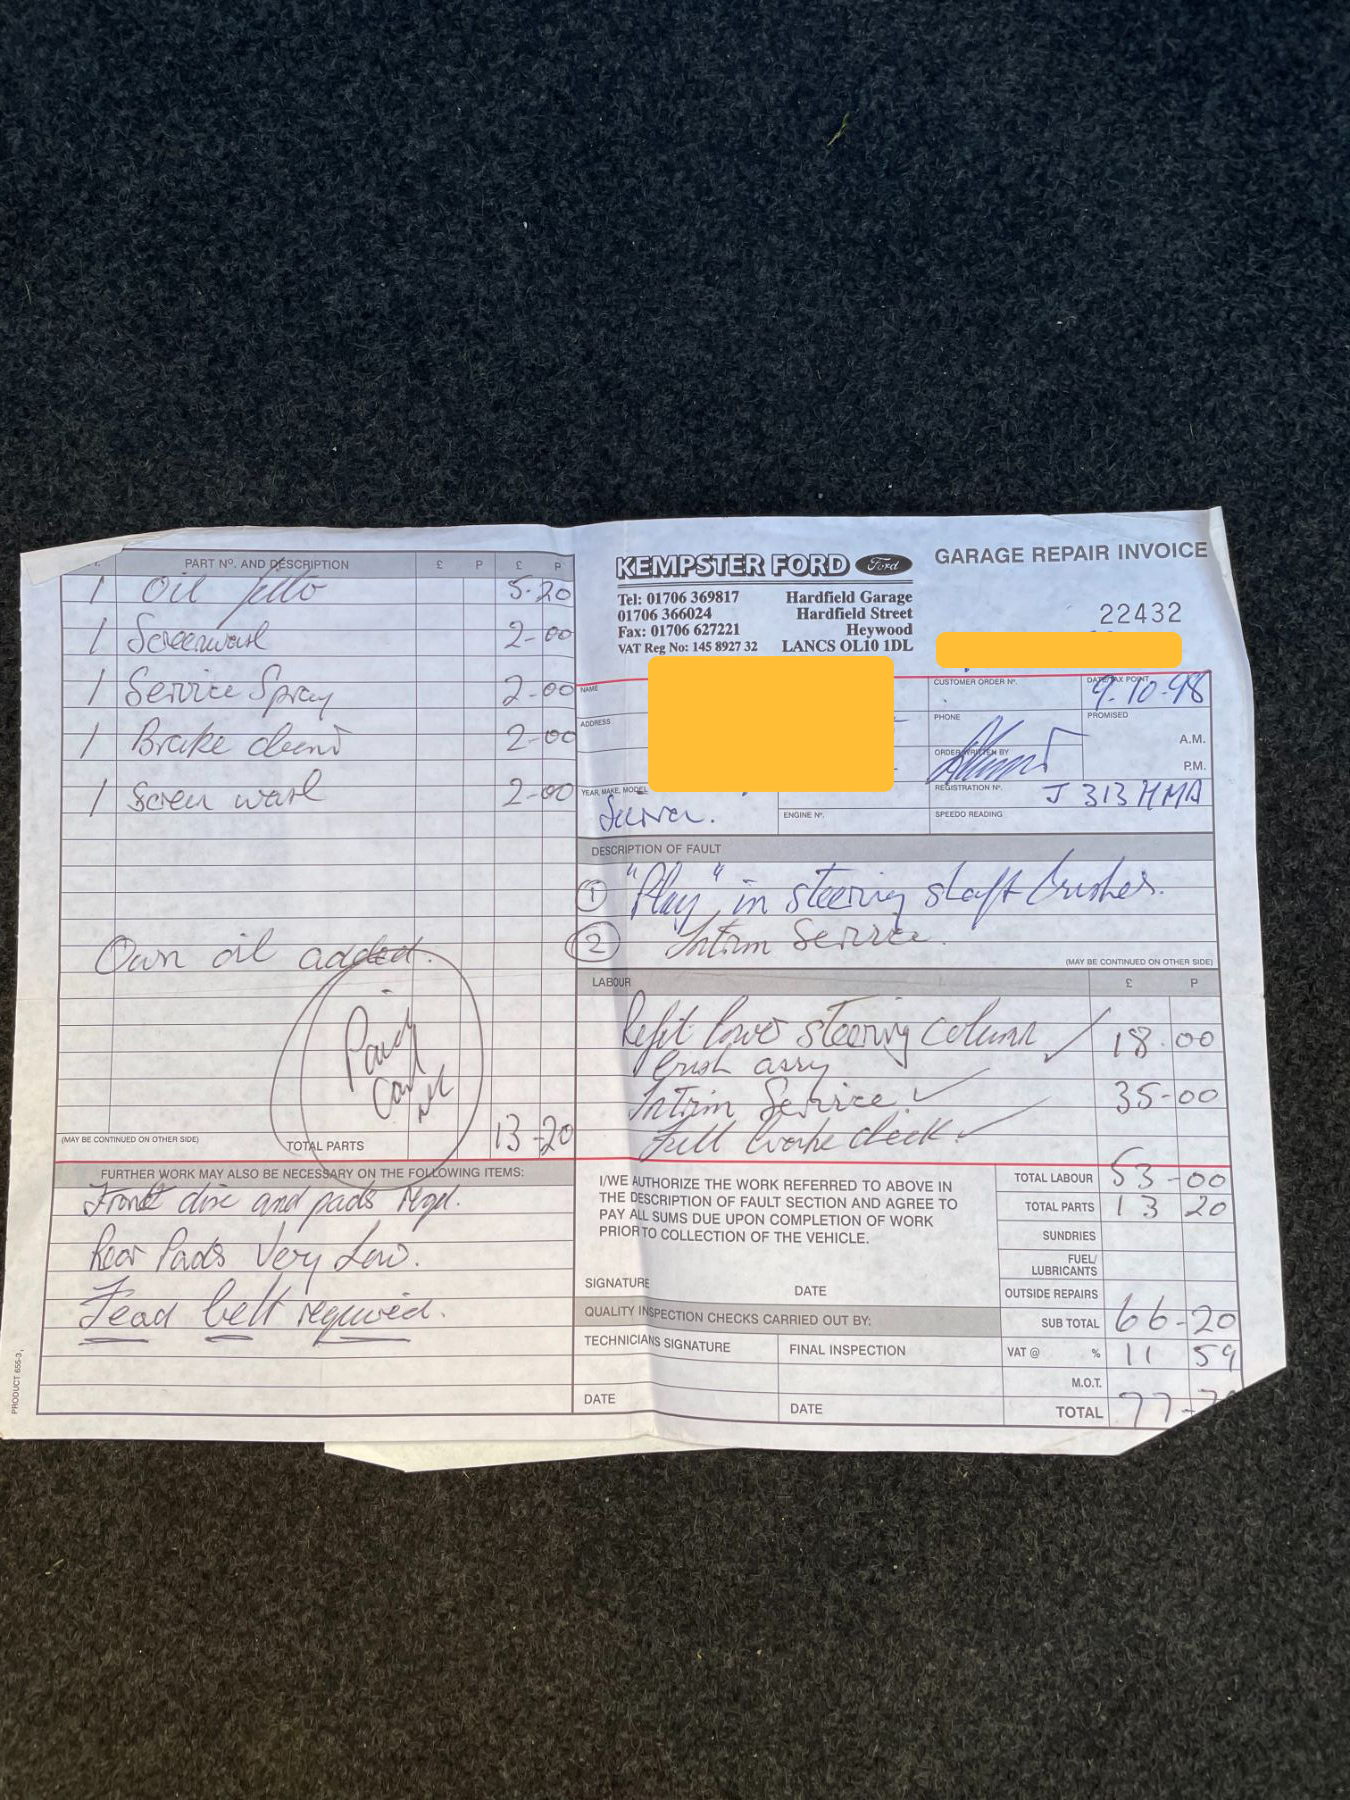 PART Nº. AND DESCRIPTION £ P £ P
1 Oil filto 5-20
1 Screenwash 2-00
1 Service Spray 2-00
1 Brake cleend 2-00
1 Screen wash 2-00
Own oil added.
Paid
(MAY BE CONTINUED ON OTHER SIDE)
TOTAL PARTS 13-20
FURTHER WORK MAY ALSO BE NECESSARY ON THE FOLLOWING ITEMS:
Front disc and pads reqd.
Rear Pads Very Low.
Fead belt required.
PRODUCT 655-3
KEMPSTER FORD Ford
GARAGE REPAIR INVOICE
Tel: 01706 369817 Hardfield Garage
01706 366024 Hardfield Street
Fax: 01706 627221 Heywood
VAT Reg No: 145 8927 32 LANCS OL10 1DL
22432
NAME
CUSTOMER ORDER Nº.
DATE/TAX POINT
9-10-98
ADDRESS
PHONE
PROMISED
A.M.
ORDER WRITTEN BY
P.M.
YEAR, MAKE, MODEL
REGISTRATION Nº.
J 313 HMA
ENGINE Nº.
SPEEDO READING
DESCRIPTION OF FAULT
1 "Play" in steering shaft brushes.
2 Intrim Service.
(MAY BE CONTINUED ON OTHER SIDE)
LABOUR £ P
Refit lower steering column 18-00
brush assy
Intrim Service. 35-00
Full brake check
I/WE AUTHORIZE THE WORK REFERRED TO ABOVE IN
THE DESCRIPTION OF FAULT SECTION AND AGREE TO
PAY ALL SUMS DUE UPON COMPLETION OF WORK
PRIOR TO COLLECTION OF THE VEHICLE.
SIGNATURE DATE
QUALITY INSPECTION CHECKS CARRIED OUT BY:
TECHNICIANS SIGNATURE FINAL INSPECTION
DATE DATE
TOTAL LABOUR 53-00
TOTAL PARTS 13 20
SUNDRIES
FUEL/
LUBRICANTS
OUTSIDE REPAIRS
SUB TOTAL 66-20
VAT @ % 11 59
M.O.T.
TOTAL 77-7